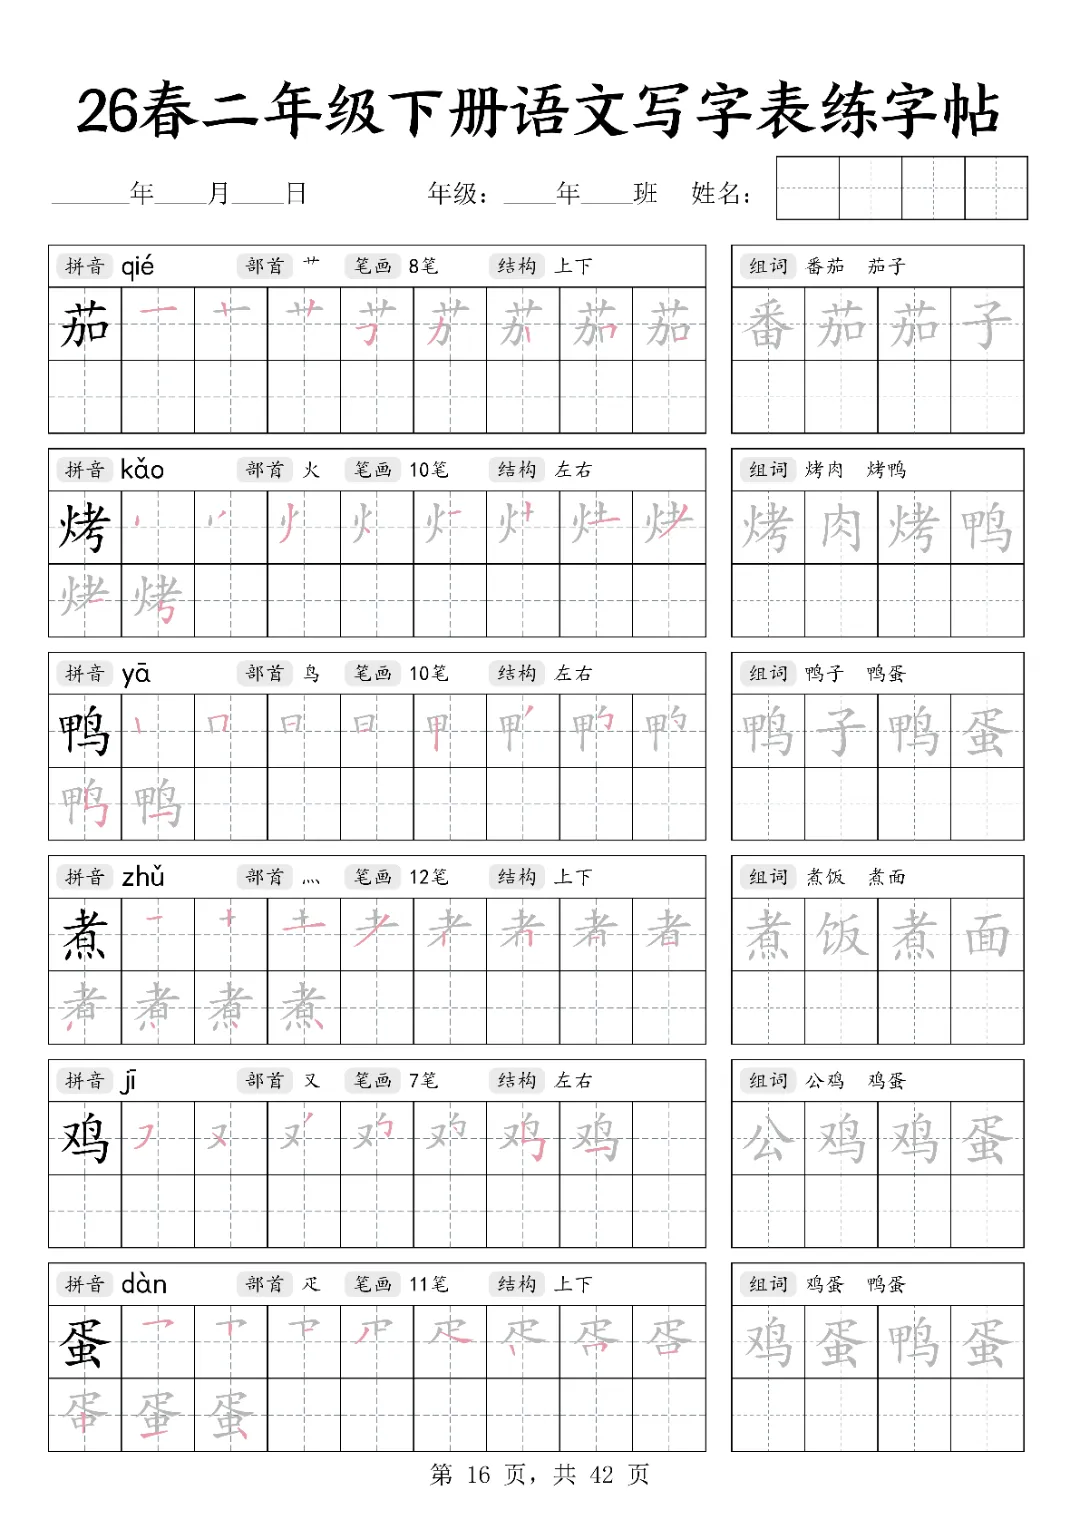 26春二年级下册语文写字表练字帖
______年____月____日 年级：____年____班 姓名：
拼音 qié 部首 艹 笔画 8笔 结构 上下 组词 番茄 茄子
茄 一 十 艹 茄 茄 茄 茄 茄 番 茄 茄 子
拼音 kǎo 部首 火 笔画 10笔 结构 左右 组词 烤肉 烤鸭
烤 烤 肉 烤 鸭
烤 烤
拼音 yā 部首 鸟 笔画 10笔 结构 左右 组词 鸭子 鸭蛋
鸭 鸭 子 鸭 蛋
鸭 鸭
拼音 zhǔ 部首 灬 笔画 12笔 结构 上下 组词 煮饭 煮面
煮 煮 饭 煮 面
煮 煮 煮 煮
拼音 jī 部首 又 笔画 7笔 结构 左右 组词 公鸡 鸡蛋
鸡 公 鸡 鸡 蛋
拼音 dàn 部首 疋 笔画 11笔 结构 上下 组词 鸡蛋 鸭蛋
蛋 鸡 蛋 鸭 蛋
蛋 蛋 蛋
第 16 页，共 42 页